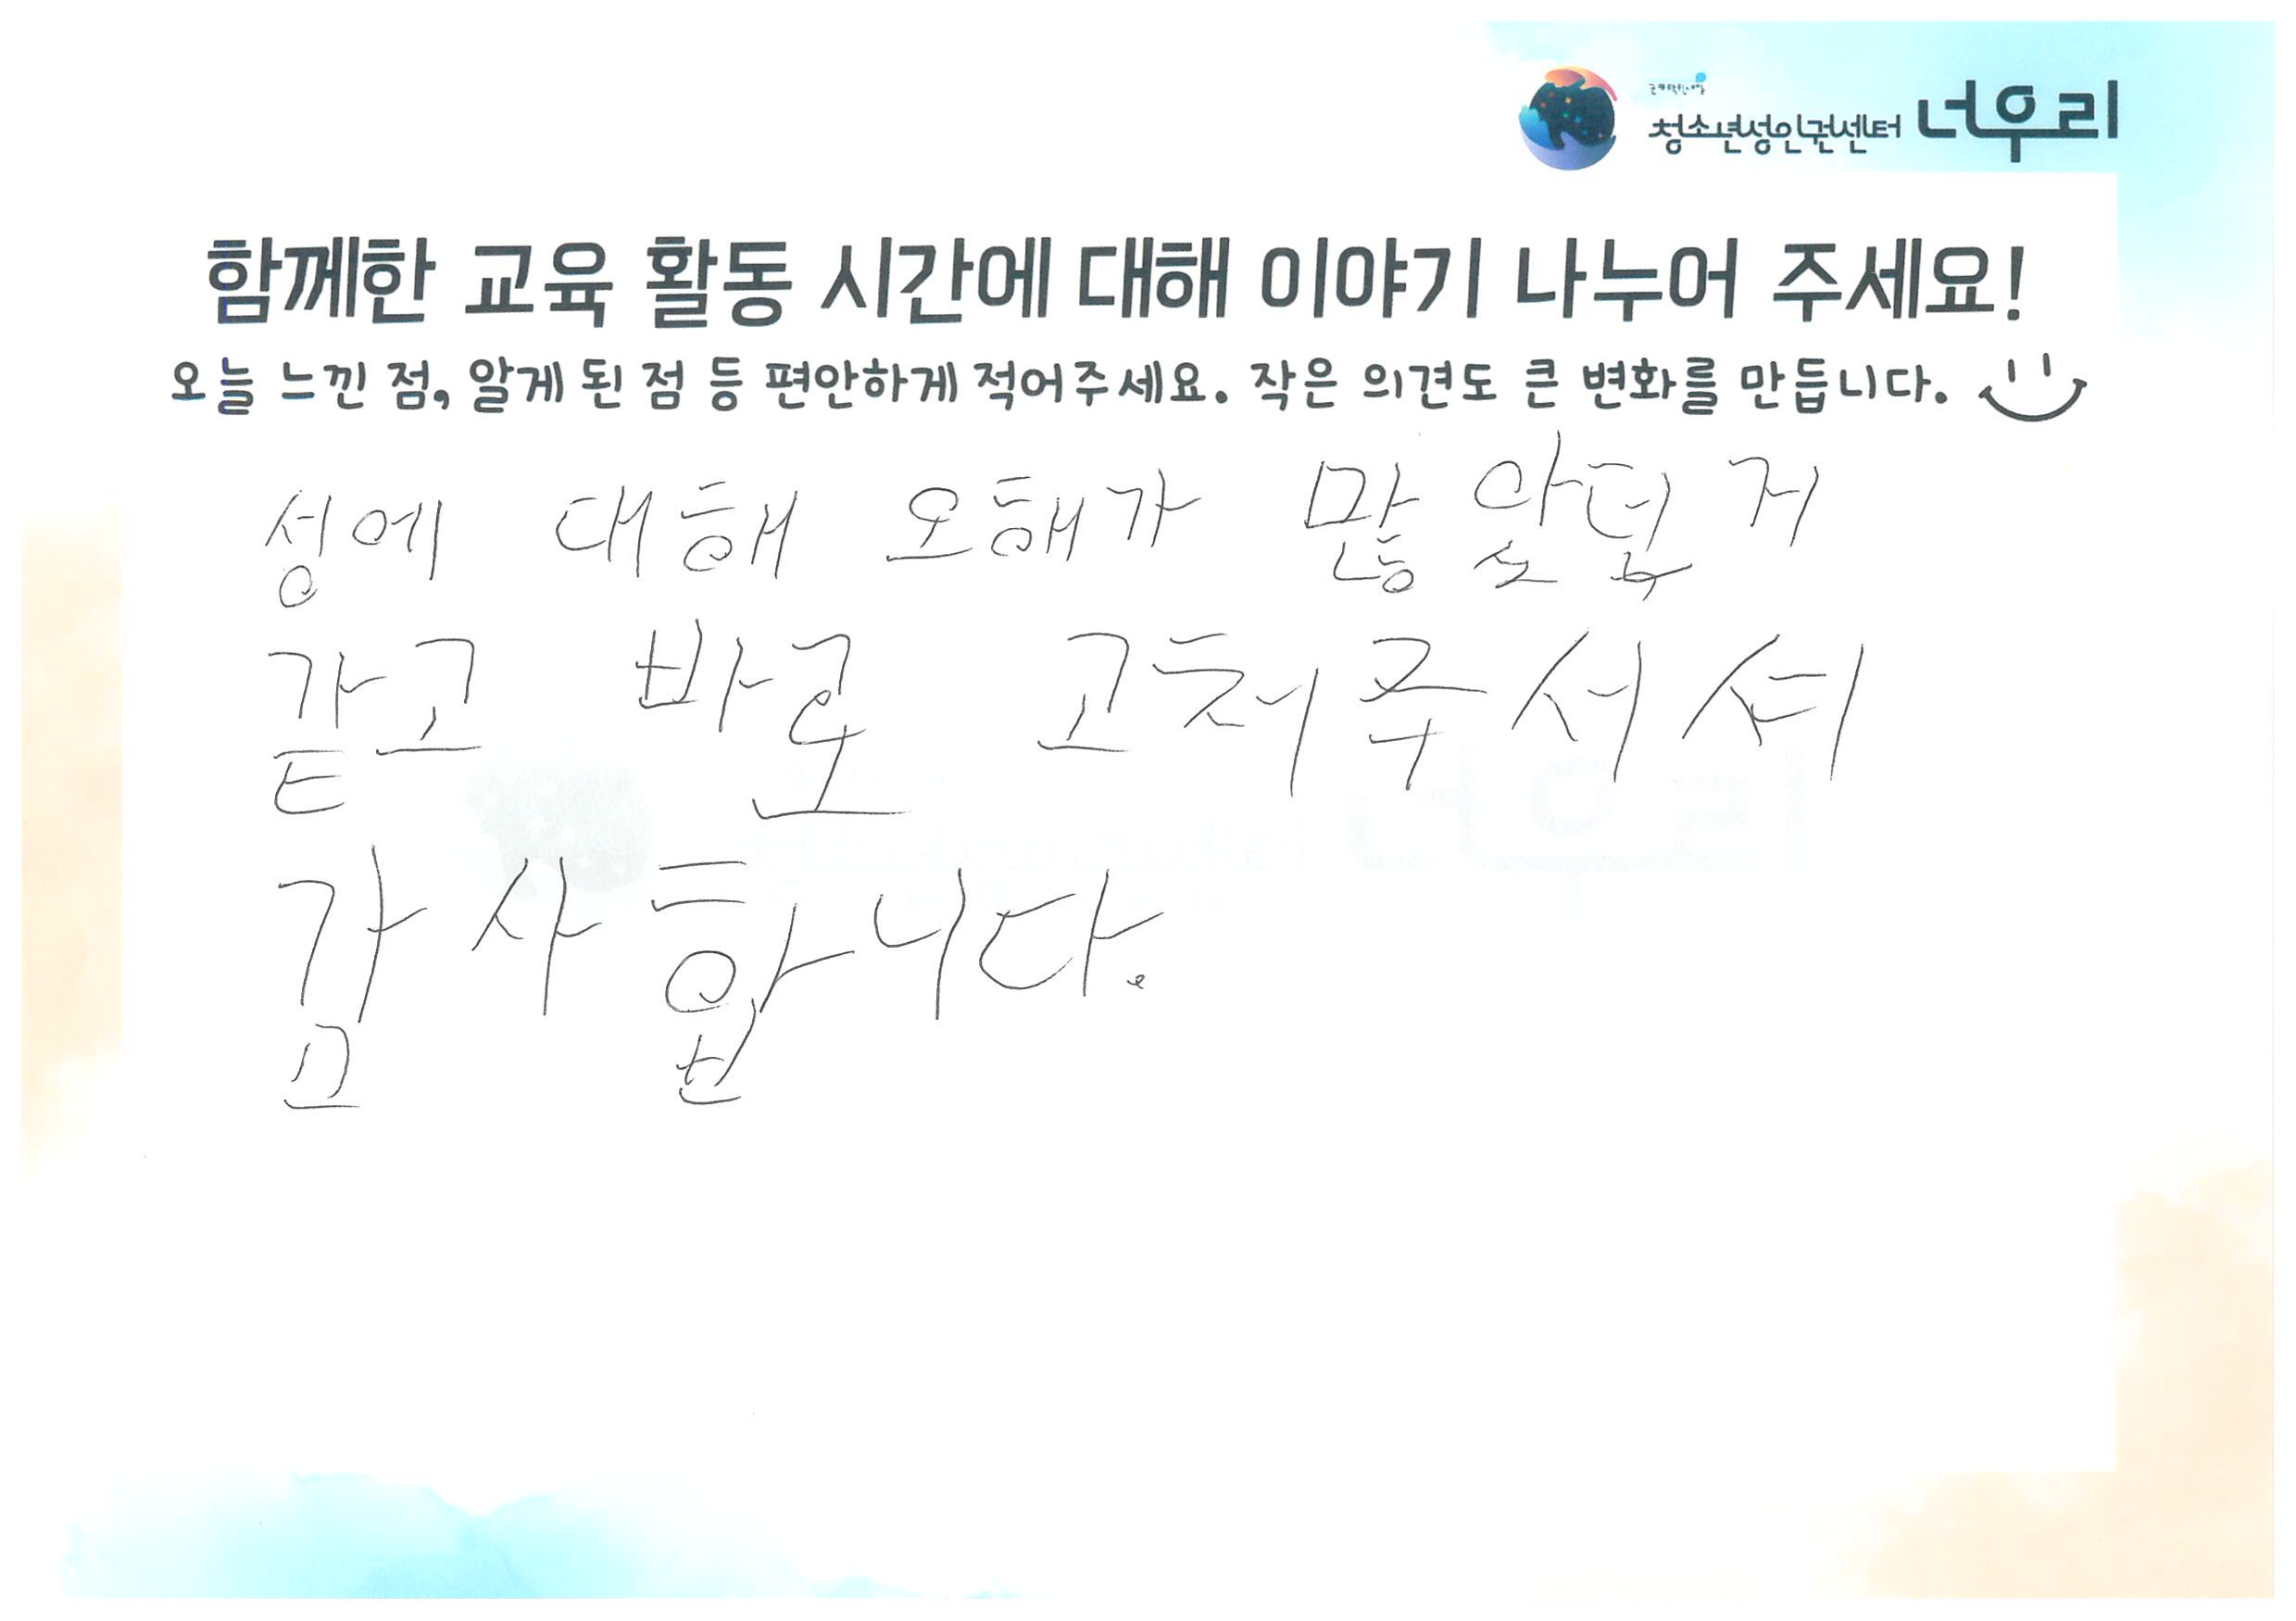 청소년성인권센터 너우리
함께한 교육 활동 시간에 대해 이야기 나누어 주세요!
오늘 느낀 점, 알게 된 점 등 편안하게 적어주세요. 작은 의견도 큰 변화를 만듭니다.
성에 대해 오해가 많았던 거
같고 바로 고쳐주서셔
감사합니다.